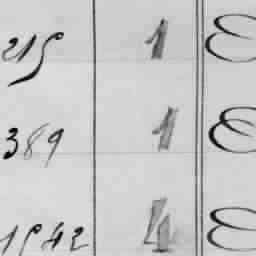 215 1
389 1
1542 4